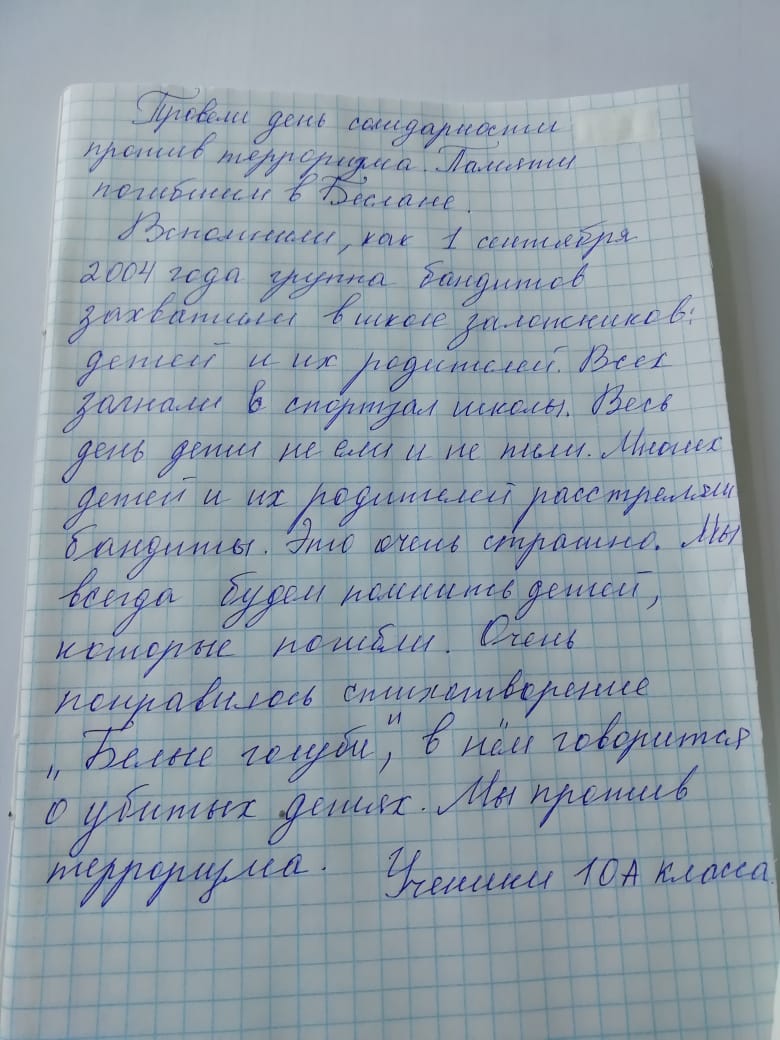 Провели день солидарности
против терроризма. Памяти
погибшим в Беслане.
Вспомнили, как 1 сентября
2004 года группа бандитов
захватили в школе заложников:
детей и их родителей. Всех
загнали в спортзал школы. Весь
день дети не ели и не пили. Многих
детей и их родителей расстреляли
бандиты. Это очень страшно. Мы
всегда будем помнить детей,
которые погибли. Очень
понравилось стихотворение
„Белые голуби", в нём говорится
о убитых детях. Мы против
терроризма. Ученики 10А класса.